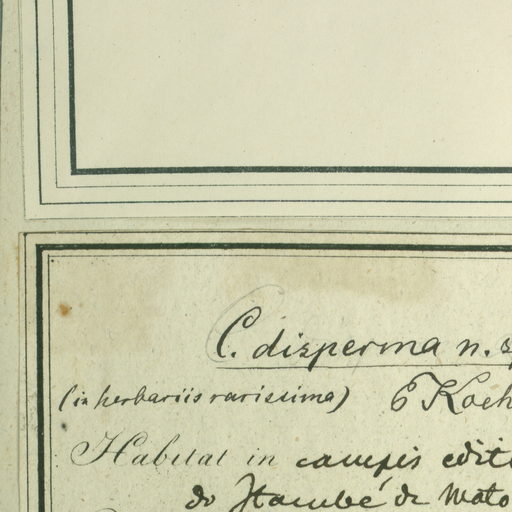 C. disperma n. sp
(in herbariis rarissima) E Koeh
Habitat in campis edit
do Itambé de Mato